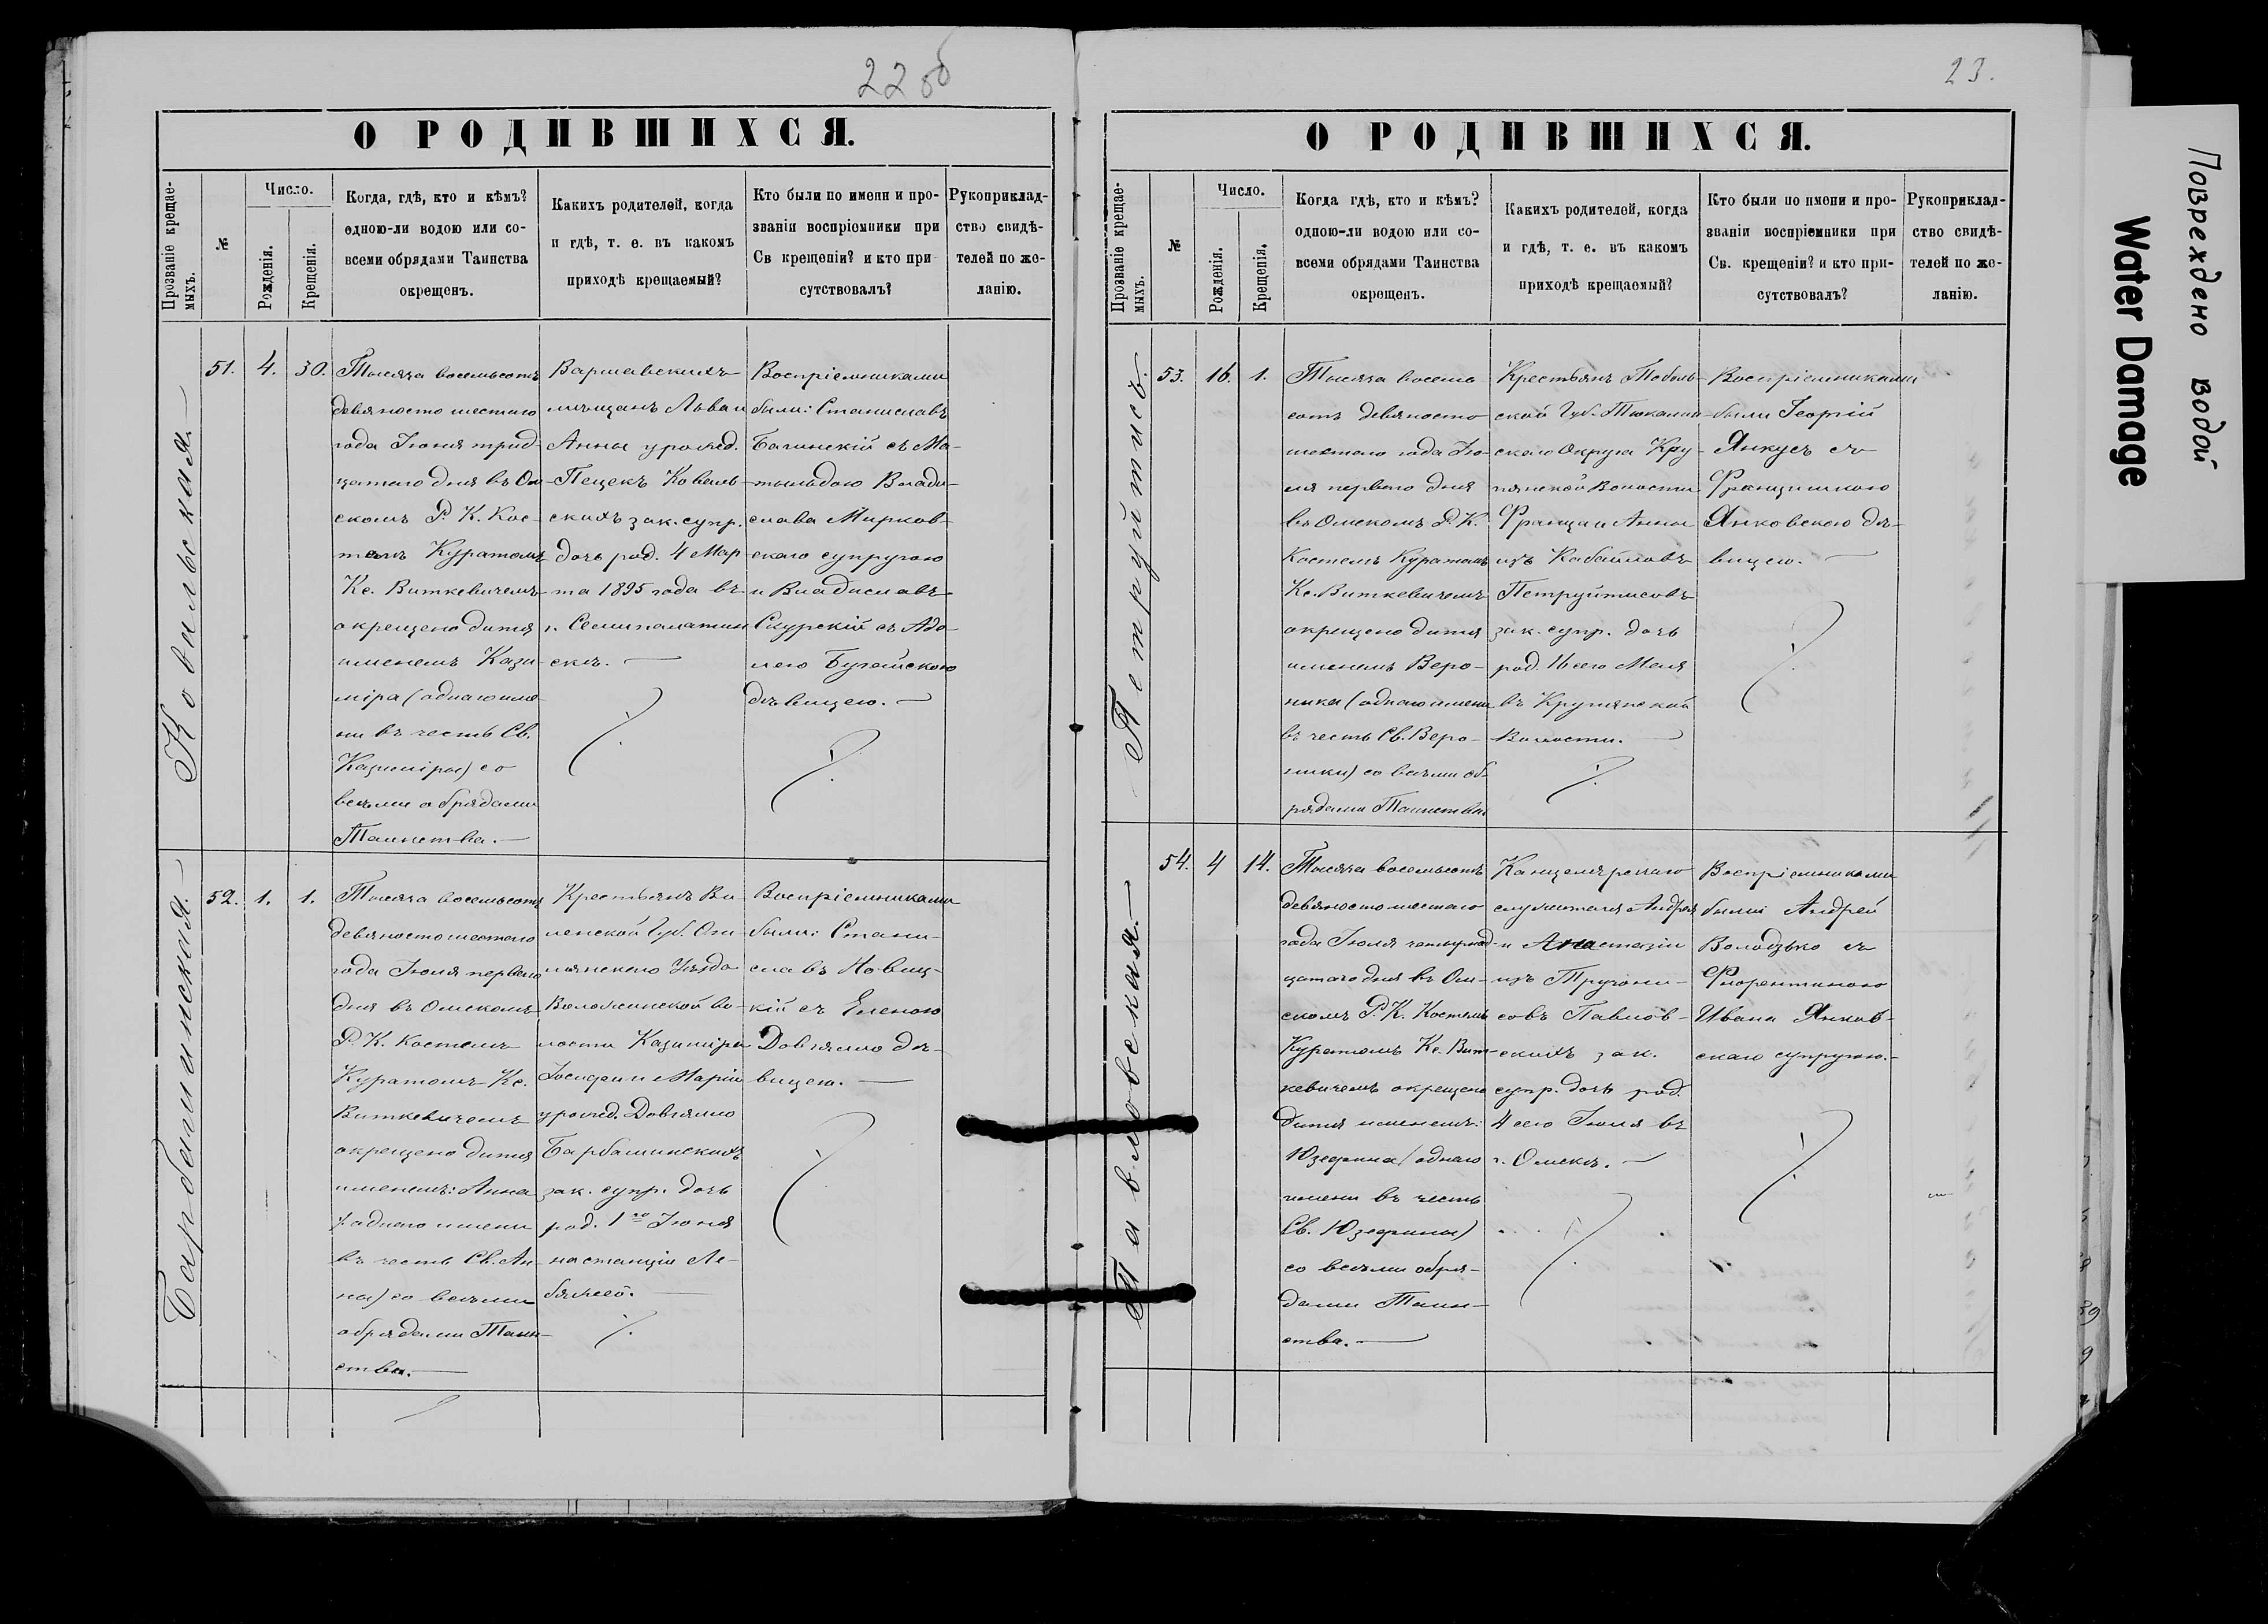 22 об
О РОДИВШИХСЯ.
Прозваніе крещае-
мыхъ.
№
Число.
Рожденія.
Крещенія.
Когда, гдѣ, кто и кѣмъ?
одною-ли водою или со-
всеми обрядами Таинства
окрещенъ.
Каких​ъ родителей, когда
и гдѣ, т. е. въ какомъ
приходѣ крещаемый?
Кто были по имени и про-
званіи воспріемники при
Св крещеніи? и кто при
сутствовалъ?
Рукоприклад-
ство свидѣ-
телей по же-
ланію.
Ковальская.
51.
4.
30.
Тысяча восемьсотъ
девяносто шестаго
года Іюня трид-
цатаго дня въ Ом-
скомъ Р. К. Кос-
телѣ Куратомъ
Кс. Виткевичемъ
окрещено дитя
именемъ Кази-
міра (однаго име-
ни въ честь Св.
Казиміры) со
всѣми обрядами
Таинства.
Варшавскихъ
мѣщанъ Льва и
Анны урожд.
Пецекъ Коваль-
скихъ зак. супр.
дочь род. 4 Мар-
та 1895 года въ
г. Семипалатин-
скѣ.
Воспріемниками
были: Станиславъ
Багинскій съ Ма-
тыльдою Влади-
слава Мирков-
скаго супругою
и Владиславъ
Скурскій съ Адо-
лею
дѣвицею.
Барбашинская.
52.
1.
1.
Тысяча восемьсотъ
девяносто шестаго
года Іюля перваго
дня въ Омскомъ
Р. К. Костелѣ
Куратомъ Кс.
Виткевичемъ
окрещено дитя
именемъ: Анна
(однаго имени
въ честь Св. Ан-
ны) со всѣми
обрядами Таин-
ства.
Крестьянъ Ви-
ленской Губ. Ош-
мянского Уѣзда
Воложинской во-
лости Казиміра
Іосифа и Маріи
урожд. Довгялло
Барбашинскихъ
зак. супр. дочь
род. 1го Іюня
на станціи Ле-
бяжей.
Воспріемниками
были: Стани-
славъ Новиц-
кій съ Еленою
Довгялло дѣ-
вицею.
23.
О РОДИВШИХСЯ.
Прозваніе крещае-
мыхъ.
№
Число.
Рожденія.
Крещенія.
Когда гдѣ, кто и кѣмъ?
одною-ли водою или со-
всеми обрядами Таинства
окрещенъ.
Какихъ родителей, когда
и гдѣ, т. е. въ какомъ
приходѣ крещаемый?
Кто были по имени и про-
званіи воспріемники при
Св. крещеніи? и кто при-
сутствовалъ?
Рукоприклад-
ство свидѣ-
телей по же-
ланію.
Петруйтись.
53.
16.
1.
Тысяча восемь
сотъ девяносто
шестаго года Ію-
ля перваго дня
въ Омскомъ Р. К.
Костелѣ Куратомъ
Кс. Виткевичемъ
окрещено дитя
именемъ Веро-
ника (однаго имени
въ честь Св. Веро-
ники) со всѣми об-
рядами Таинства
Крестьянъ Тоболь-
ской Губ. Тюкалин-
скаго Округа Кру-
пянской Волости
Франца и Анны
изъ
Петруйтисовъ
зак. супр. дочь
род. 16 сего Мая
въ Крупянской
Волости.
Воспріемниками
были Георгій
Янкусъ съ
Францишкою
Янковскою дѣ-
вицею.
Павловская.
54.
4
14.
Тысяча восемьсотъ
девяносто шестаго
года Іюля четырнад-
цатаго дня въ Ом-
скомъ Р. К. Костелѣ
Куратомъ Кс. Вит-
кевичемъ окрещено
дитя именемъ:
Юзефина (однаго
имени въ честь
Св. Юзефины)
со всѣми обря-
дами Таин-
ства.
Канцелярскаго
служителя Андрея
и Анастазіи
изъ
Павлов-
скихъ зак.
супр. дочь род.
4 сего Іюля въ
г. Омскѣ.
Воспріемниками
были Андрей
Володзько съ
Флорентиною
Ивана Янков-
скаго супругою.
Повреждено водой
Water Damage